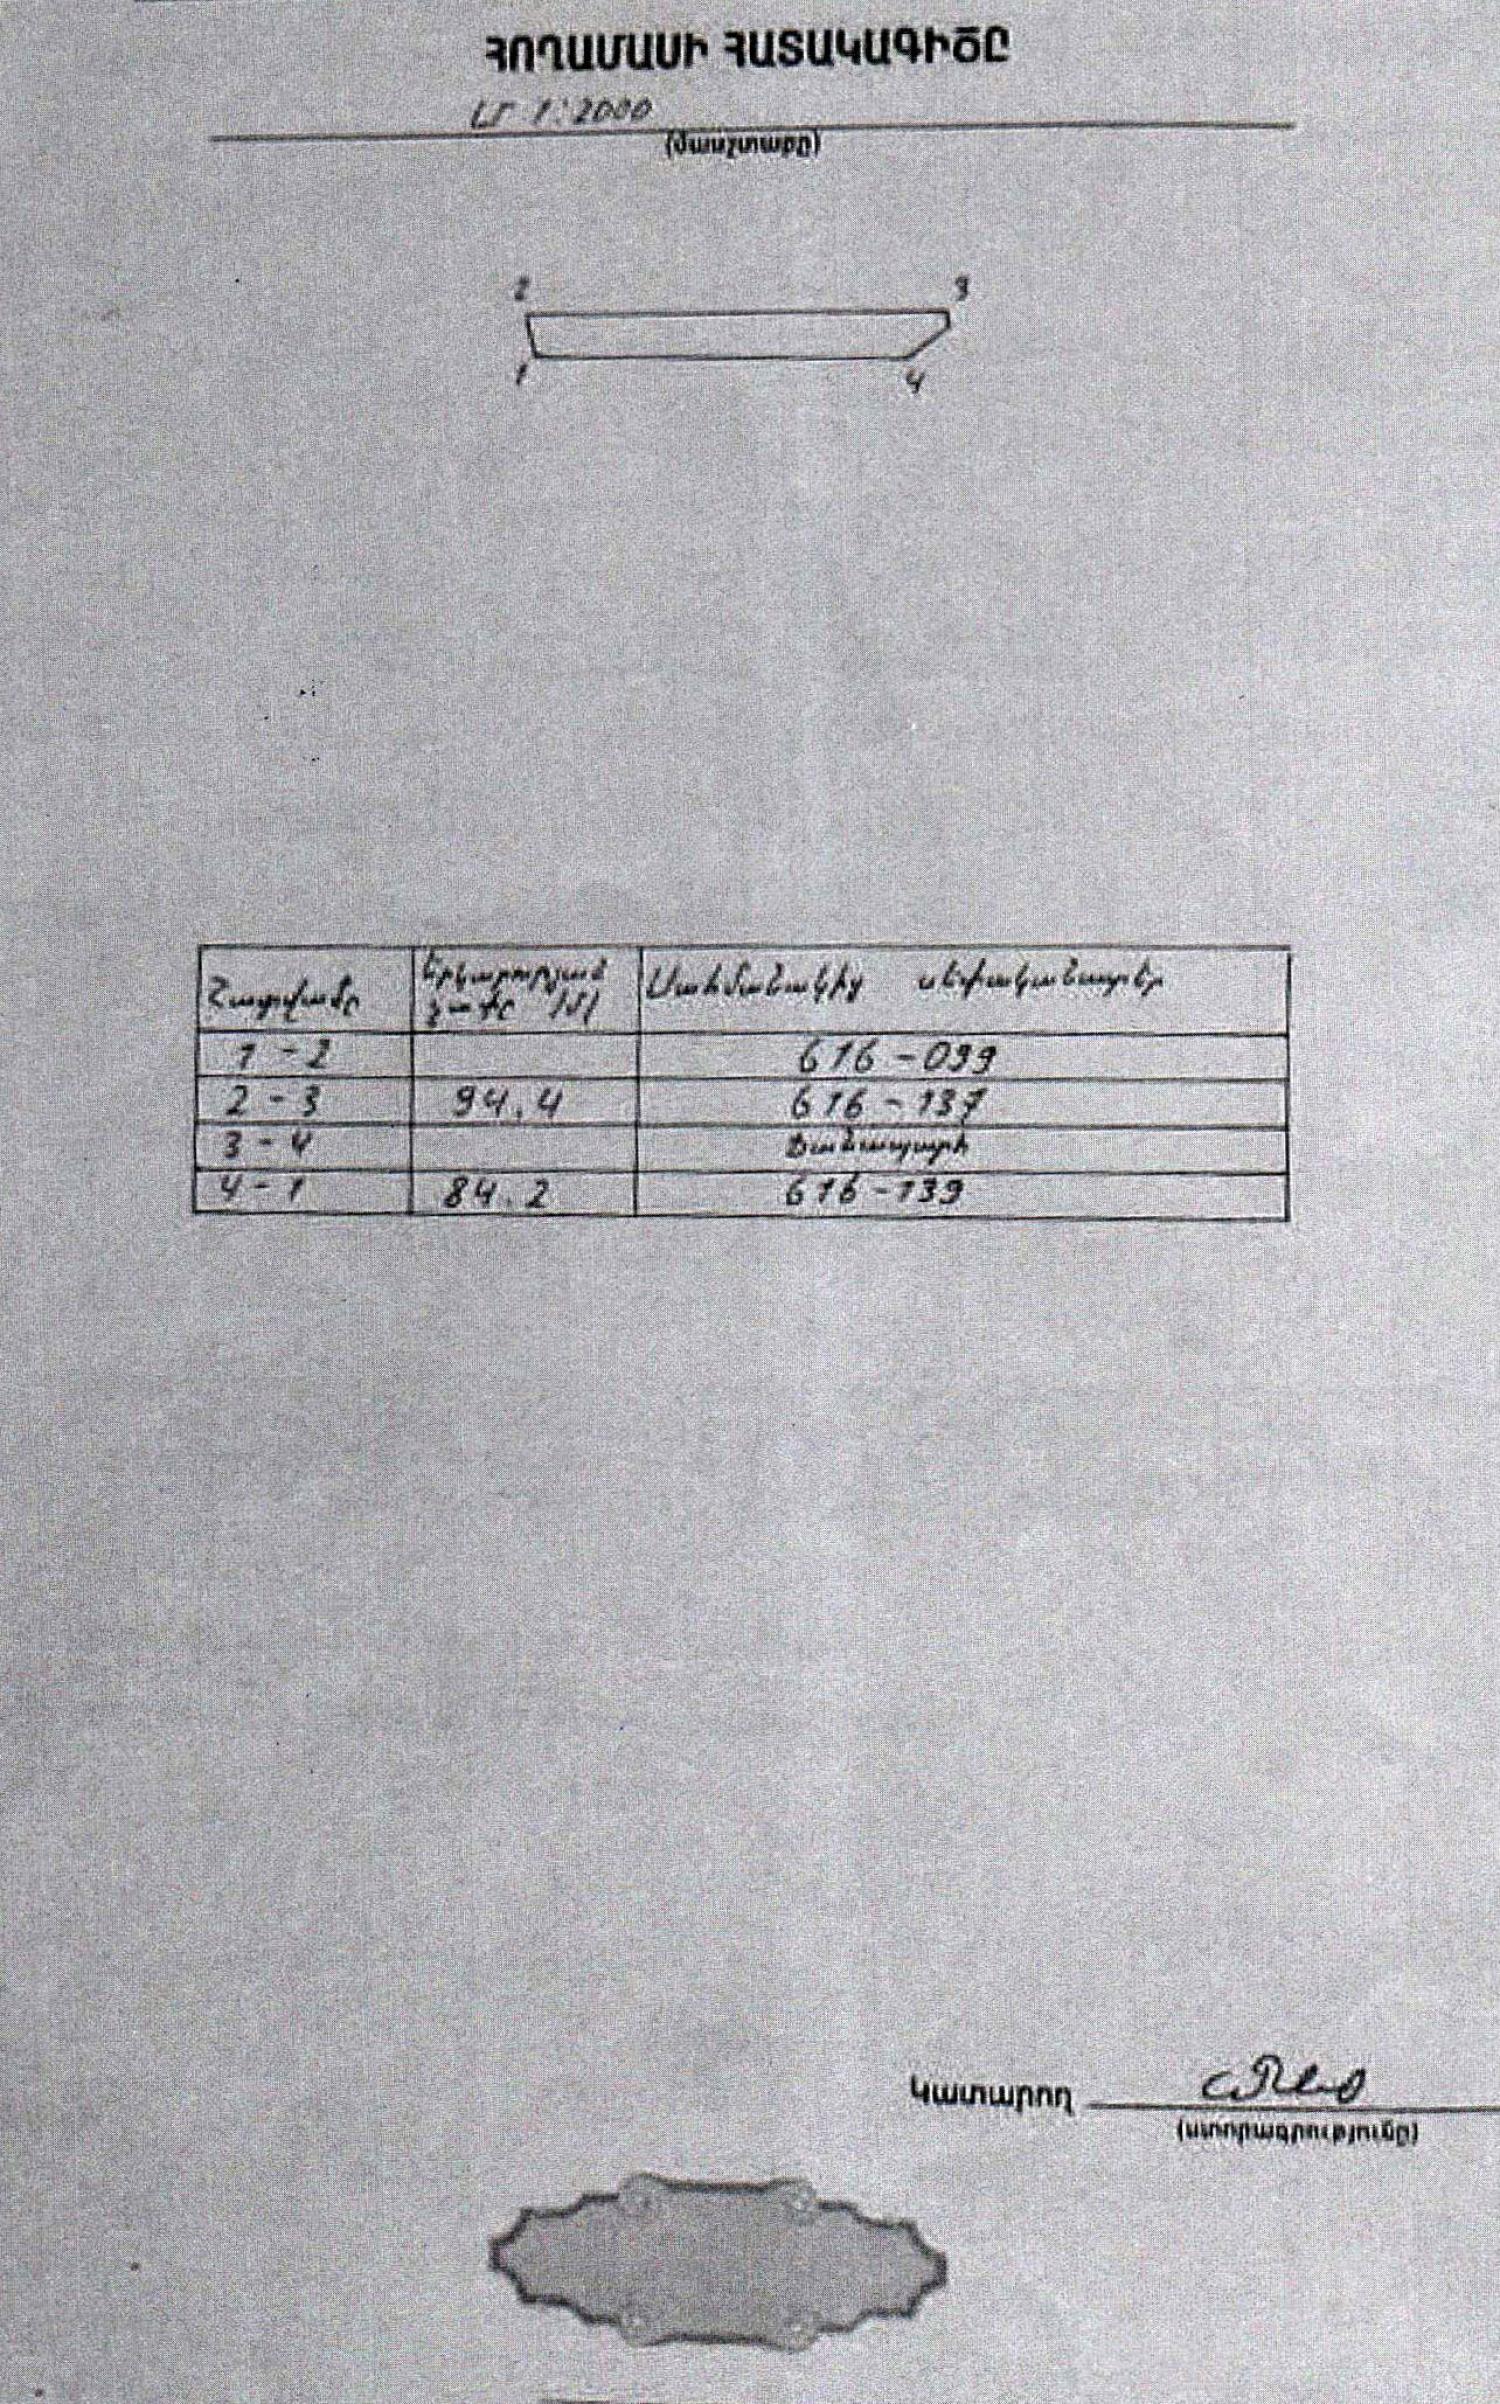 ՀՈՂԱՄԱՍԻ ՀԱՏԱԿԱԳԻԾԸ
Մ 1:2000
(մասշտաբը)
2 3
1 4
Հատվածը Երկարության չափը /մ/ Սահմանակից սեփականատեր
1-2 616-099
2-3 94.4 616-137
3-4 Ճանապարհ
4-1 84.2 616-139
Կատարող
(ստորագրությունը)